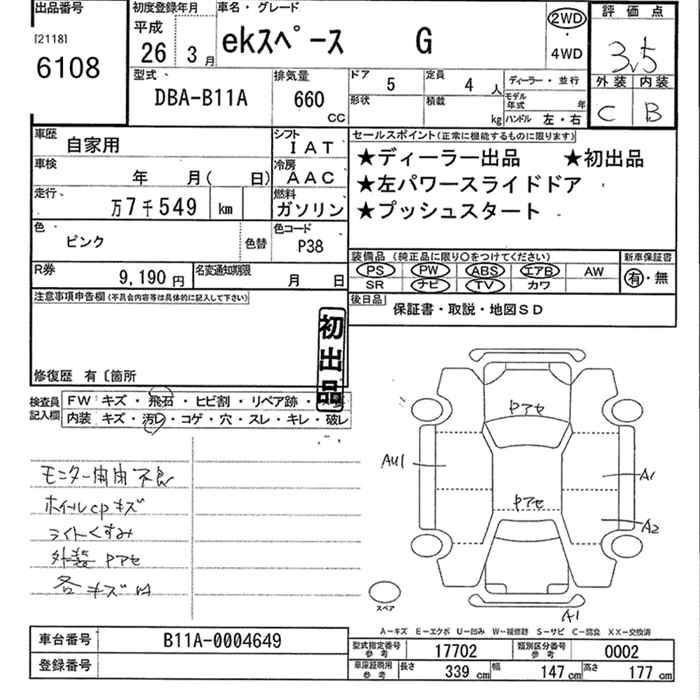 出品番号
[2118]
6108
初度登録年月
平成
26年
3月
車名・グレード
ekスペース G
2WD
・
4WD
評価点
3.5
外装 内装
C B
型式
DBA-B11A
排気量
660
CC
ドア 5 定員 4 人
形状 積載 kg
ディーラー・並行
モデル年式 年
ハンドル 左・右
車歴 自家用
シフト IAT
車検 年 月( 日)
冷房 AAC
走行 万7千549 km
燃料 ガソリン
色 ピンク 色替
色コード P38
R券 9,190 円
名変通知期限 月 日
セールスポイント(正常に機能するものに限ります)
★ディーラー出品 ★初出品
★左パワースライドドア
★プッシュスタート
装備品 (純正品に限り○をつけてください)
PS PW ABS エアB AW
SR ナビ TV カワ
新車保証書
有・無
後日品
保証書・取説・地図SD
注意事項申告欄(不具合内容等は具体的に記入して下さい)
初出品
修復歴 有 〔箇所
検査員記入欄
FW キズ・飛石・ヒビ割・リペア跡・
内装 キズ・汚レ・コゲ・穴・スレ・キレ・破レ
モニター 不良
ホイルcpキズ
ライトくすみ
外装 Pアセ
各キズ凹
Pアセ
AU1
A1
Pアセ
A2
スペア
A1
A-キズ E-エクボ U-凹み W-補修跡 S-サビ C-腐食 XX-交換済
車台番号 B11A-0004649
登録番号
型式指定番号 参考 17702
類別区分番号 参考 0002
車庫証明用 参考 長さ 339 cm 幅 147 cm 高さ 177 cm